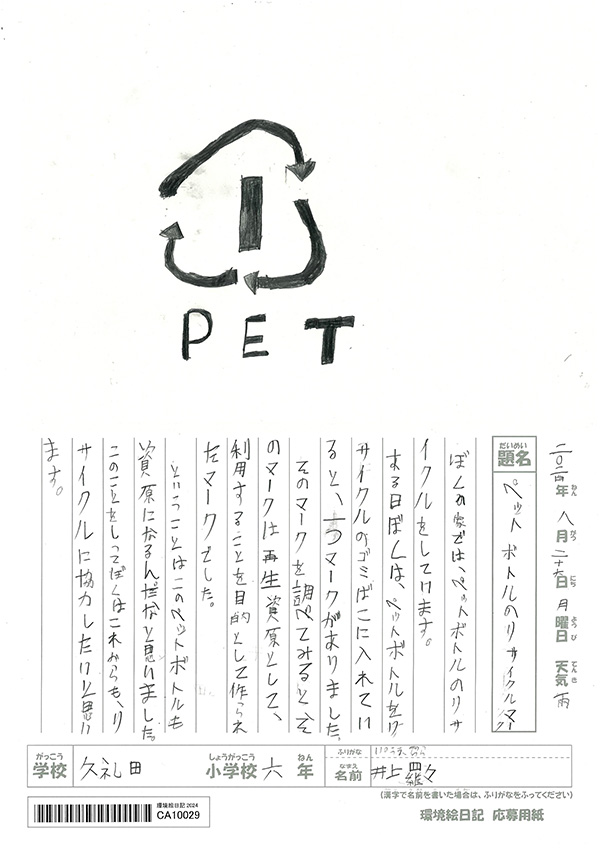 1
PET
二〇二四年 八月 二十六日 月曜日 天気 雨
ねん がつ にち ようび てんき
だいめい
題名
ペットボトルのリサイクルマーク
ぼくの家では、ペットボトルのリサ
イクルをしています。
する日ぼくは、ペットボトルをリ
サイクルのゴミばこに入れてい
ると、一つマークがありました。
そのマークを調べてみると、そ
のマークは再生資原として、
利用することを目的として作られ
たマークでした。
ということはこのペットボトルも
資原になるんだなと思いました。
このことをしってぼくはこれからも、リ
サイクルに協力したいと思い
ます。
がっこう しょうがっこう ねん
学校 久礼田 小学校 六 年
ふりがな
なまえ
名前 井上
(漢字で名前を書いた場合は、ふりがなをふってください)
環境絵日記 2024
CA10029
環境絵日記 応募用紙